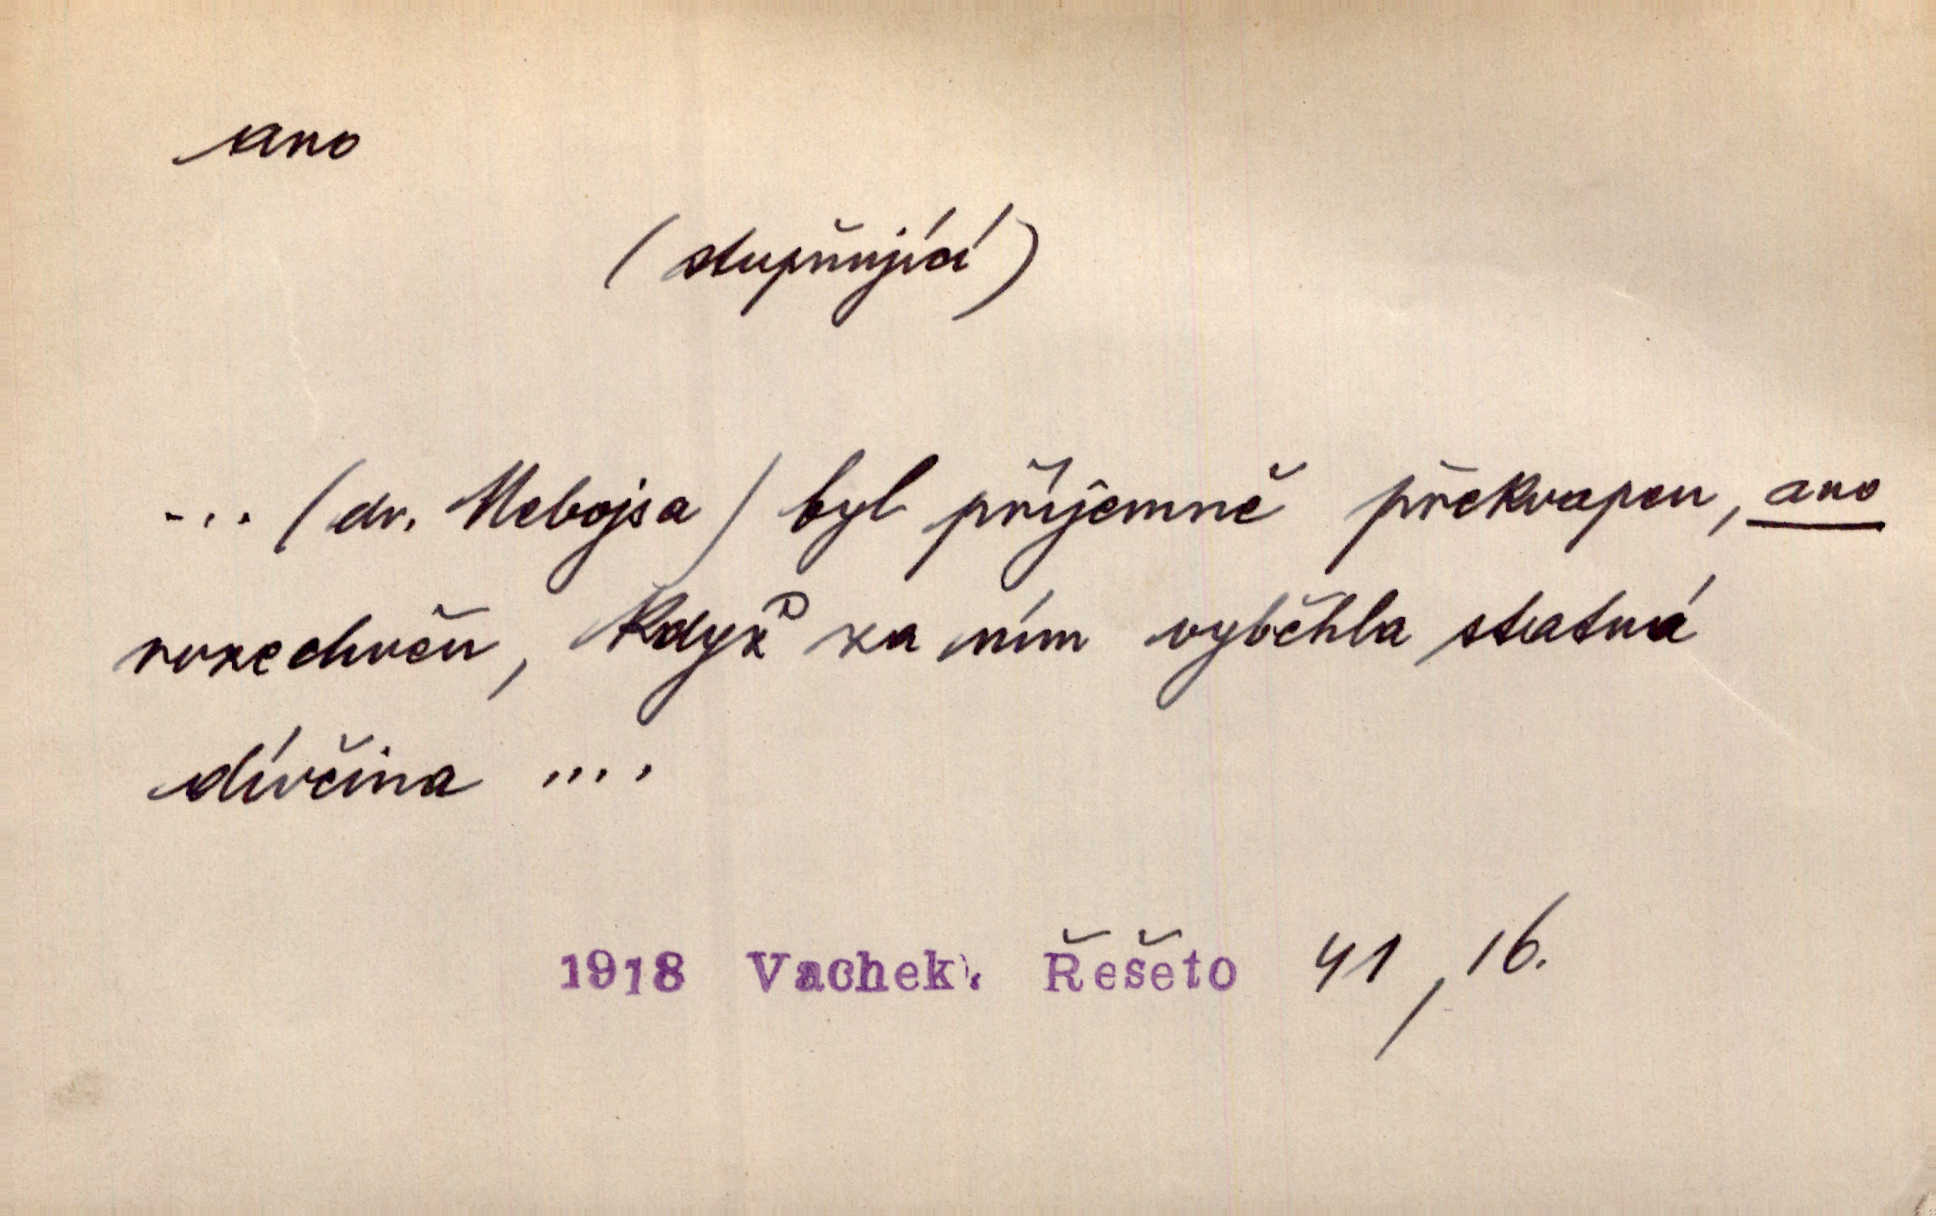 ano
(stupňující)
... (dr. Nebojsa) byl příjemně překvapen, ano
rozechvěn, když za ním vyběhla statná
dívčina ....
1918 Vachek. Řešeto 41, 16.